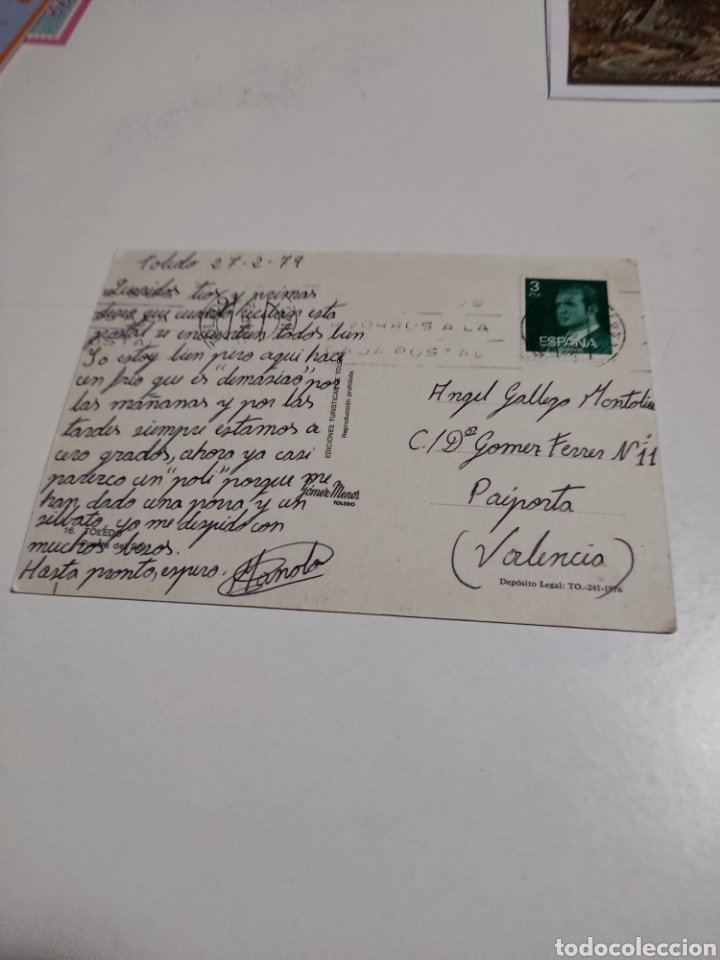 Toledo 27-2-79
Queridos tios y primas
deseo que cuando reciban esta
postal se encuentren todos bien
Yo estoy bien pero aqui hace
un frio que es "demasiao" por
las mañanas y por las
tardes siempre estamos a
cero grados, ahora ya casi
parezco un "poli" porque me
han dado una porra y un
silvato, yo me despido con
muchos besos.
Hasta pronto, espero. Manolo
16. TOLEDO
EDICIONES TURISTICAS DE TOLEDO
Reproducción prohibida
Gómez Menor
TOLEDO
A LA
POSTAL
3
PTA
ESPAÑA
Angel Gallego
C/Dª Gomer Ferrer Nº 11
Paiporta
(Valencia)
Depósito Legal: TO.-241-1976
todocoleccion